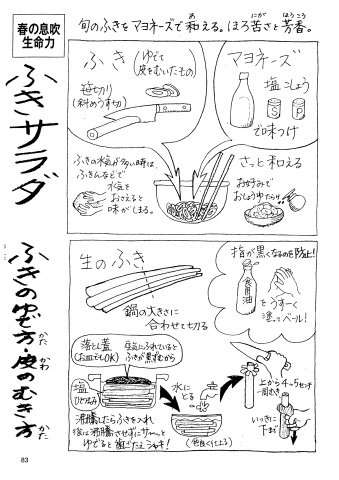 春の息吹
生命力
ふきサラダ
旬のふきをマヨネーズで和える。ほろ苦さと芳香。
あ
にが
ほうこう
ふき
(ゆでて
皮をむいたもの)
笹切り
(斜めうす切り)
マヨネーズ
塩こしょう
S
P
で味つけ
ふきの水気が多い時は、
ふきんなどで
水気を
おさえると
味がしまる。
さっと和える
お好みで
おしょうゆたらり
ふきのゆで方・皮のむき方
かた
かわ
かた
生のふき
鍋の大きさに
合わせて切る
指が黒くなるのを防止!
食用油
をうすーく
塗ってベール!
落とし蓋
(お皿でもOK)
空気にふれていると
ふきが黒ずむから
塩
ひとつまみ
水に
とる
沸騰したらふきを入れ
後は沸騰させずにサーッと
ゆでると歯ごたえシャキ!
(色良く仕上る)
上から4〜5センチ
一周むき
いっきに
下まで
83